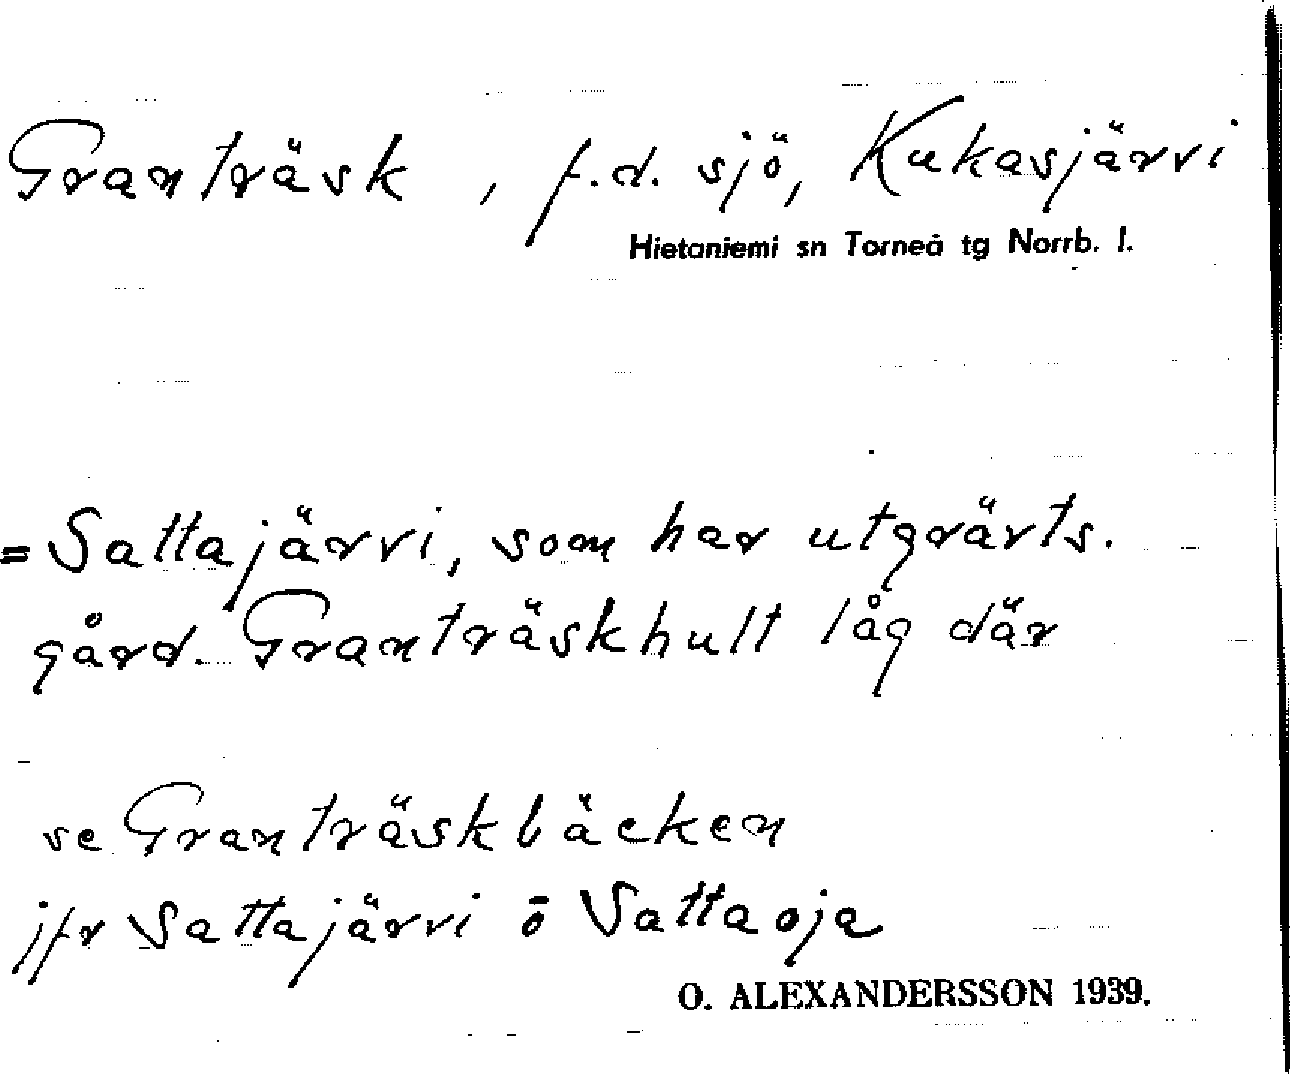 Granträsk, f.d. sjö, Kukasjärvi
Hietaniemi sn Torneå tg Norrb. l.
= Sattajärvi, som har utgrävts.
gård. Granträskhult låg där
se Granträskbäcken
jfr Sattajärvi o Sattaoja
O. ALEXANDERSSON 1939.